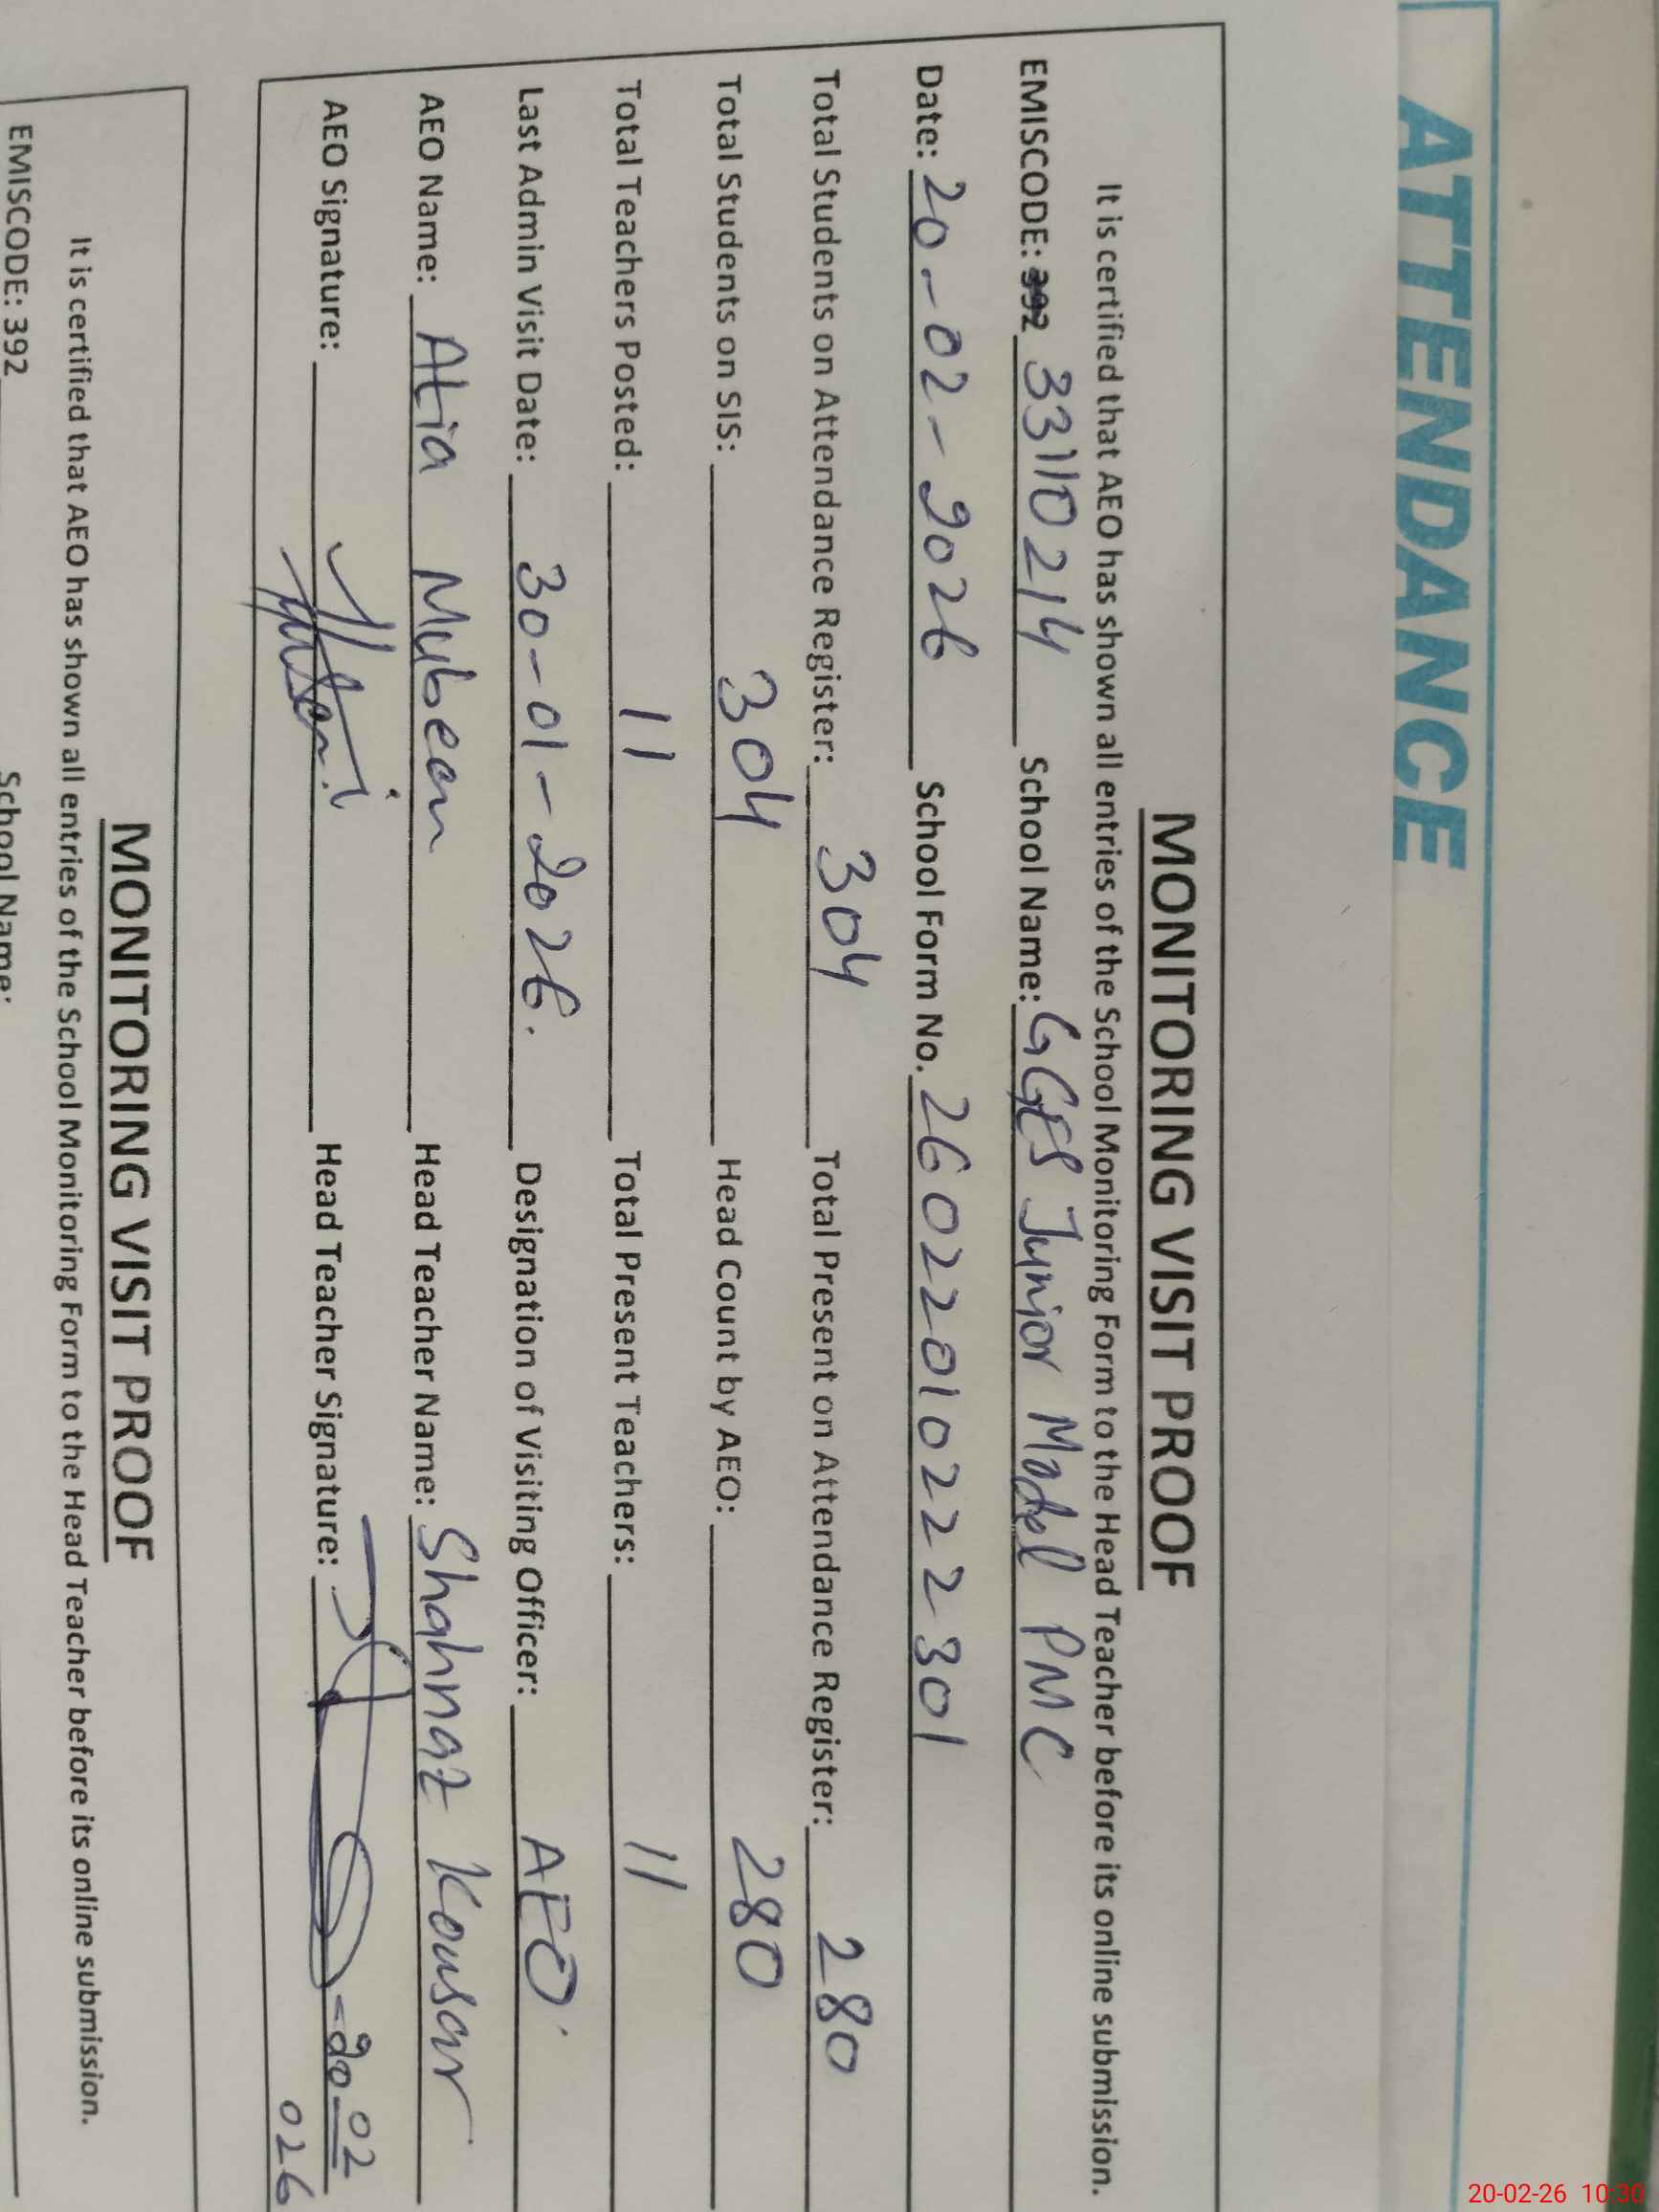 ATTENDANCE
MONITORING VISIT PROOF
It is certified that AEO has shown all entries of the School Monitoring Form to the Head Teacher before its online submission.
EMISCODE: 392 33110214 School Name: GGES Junior Model PMC
Date: 20-02-2026 School Form No. 26022010222301
Total Students on Attendance Register: 304 Total Present on Attendance Register: 280
Total Students on SIS: 304 Head Count by AEO: 280
Total Teachers Posted: 11 Total Present Teachers: 11
Last Admin Visit Date: 30-01-2026. Designation of Visiting Officer: AEO.
AEO Name: Atia Mubeen Head Teacher Name: Shahnaz Kousar
AEO Signature: Head Teacher Signature: 20-02
026
MONITORING VISIT PROOF
It is certified that AEO has shown all entries of the School Monitoring Form to the Head Teacher before its online submission.
EMISCODE: 392 School Name:
20-02-26 10:30